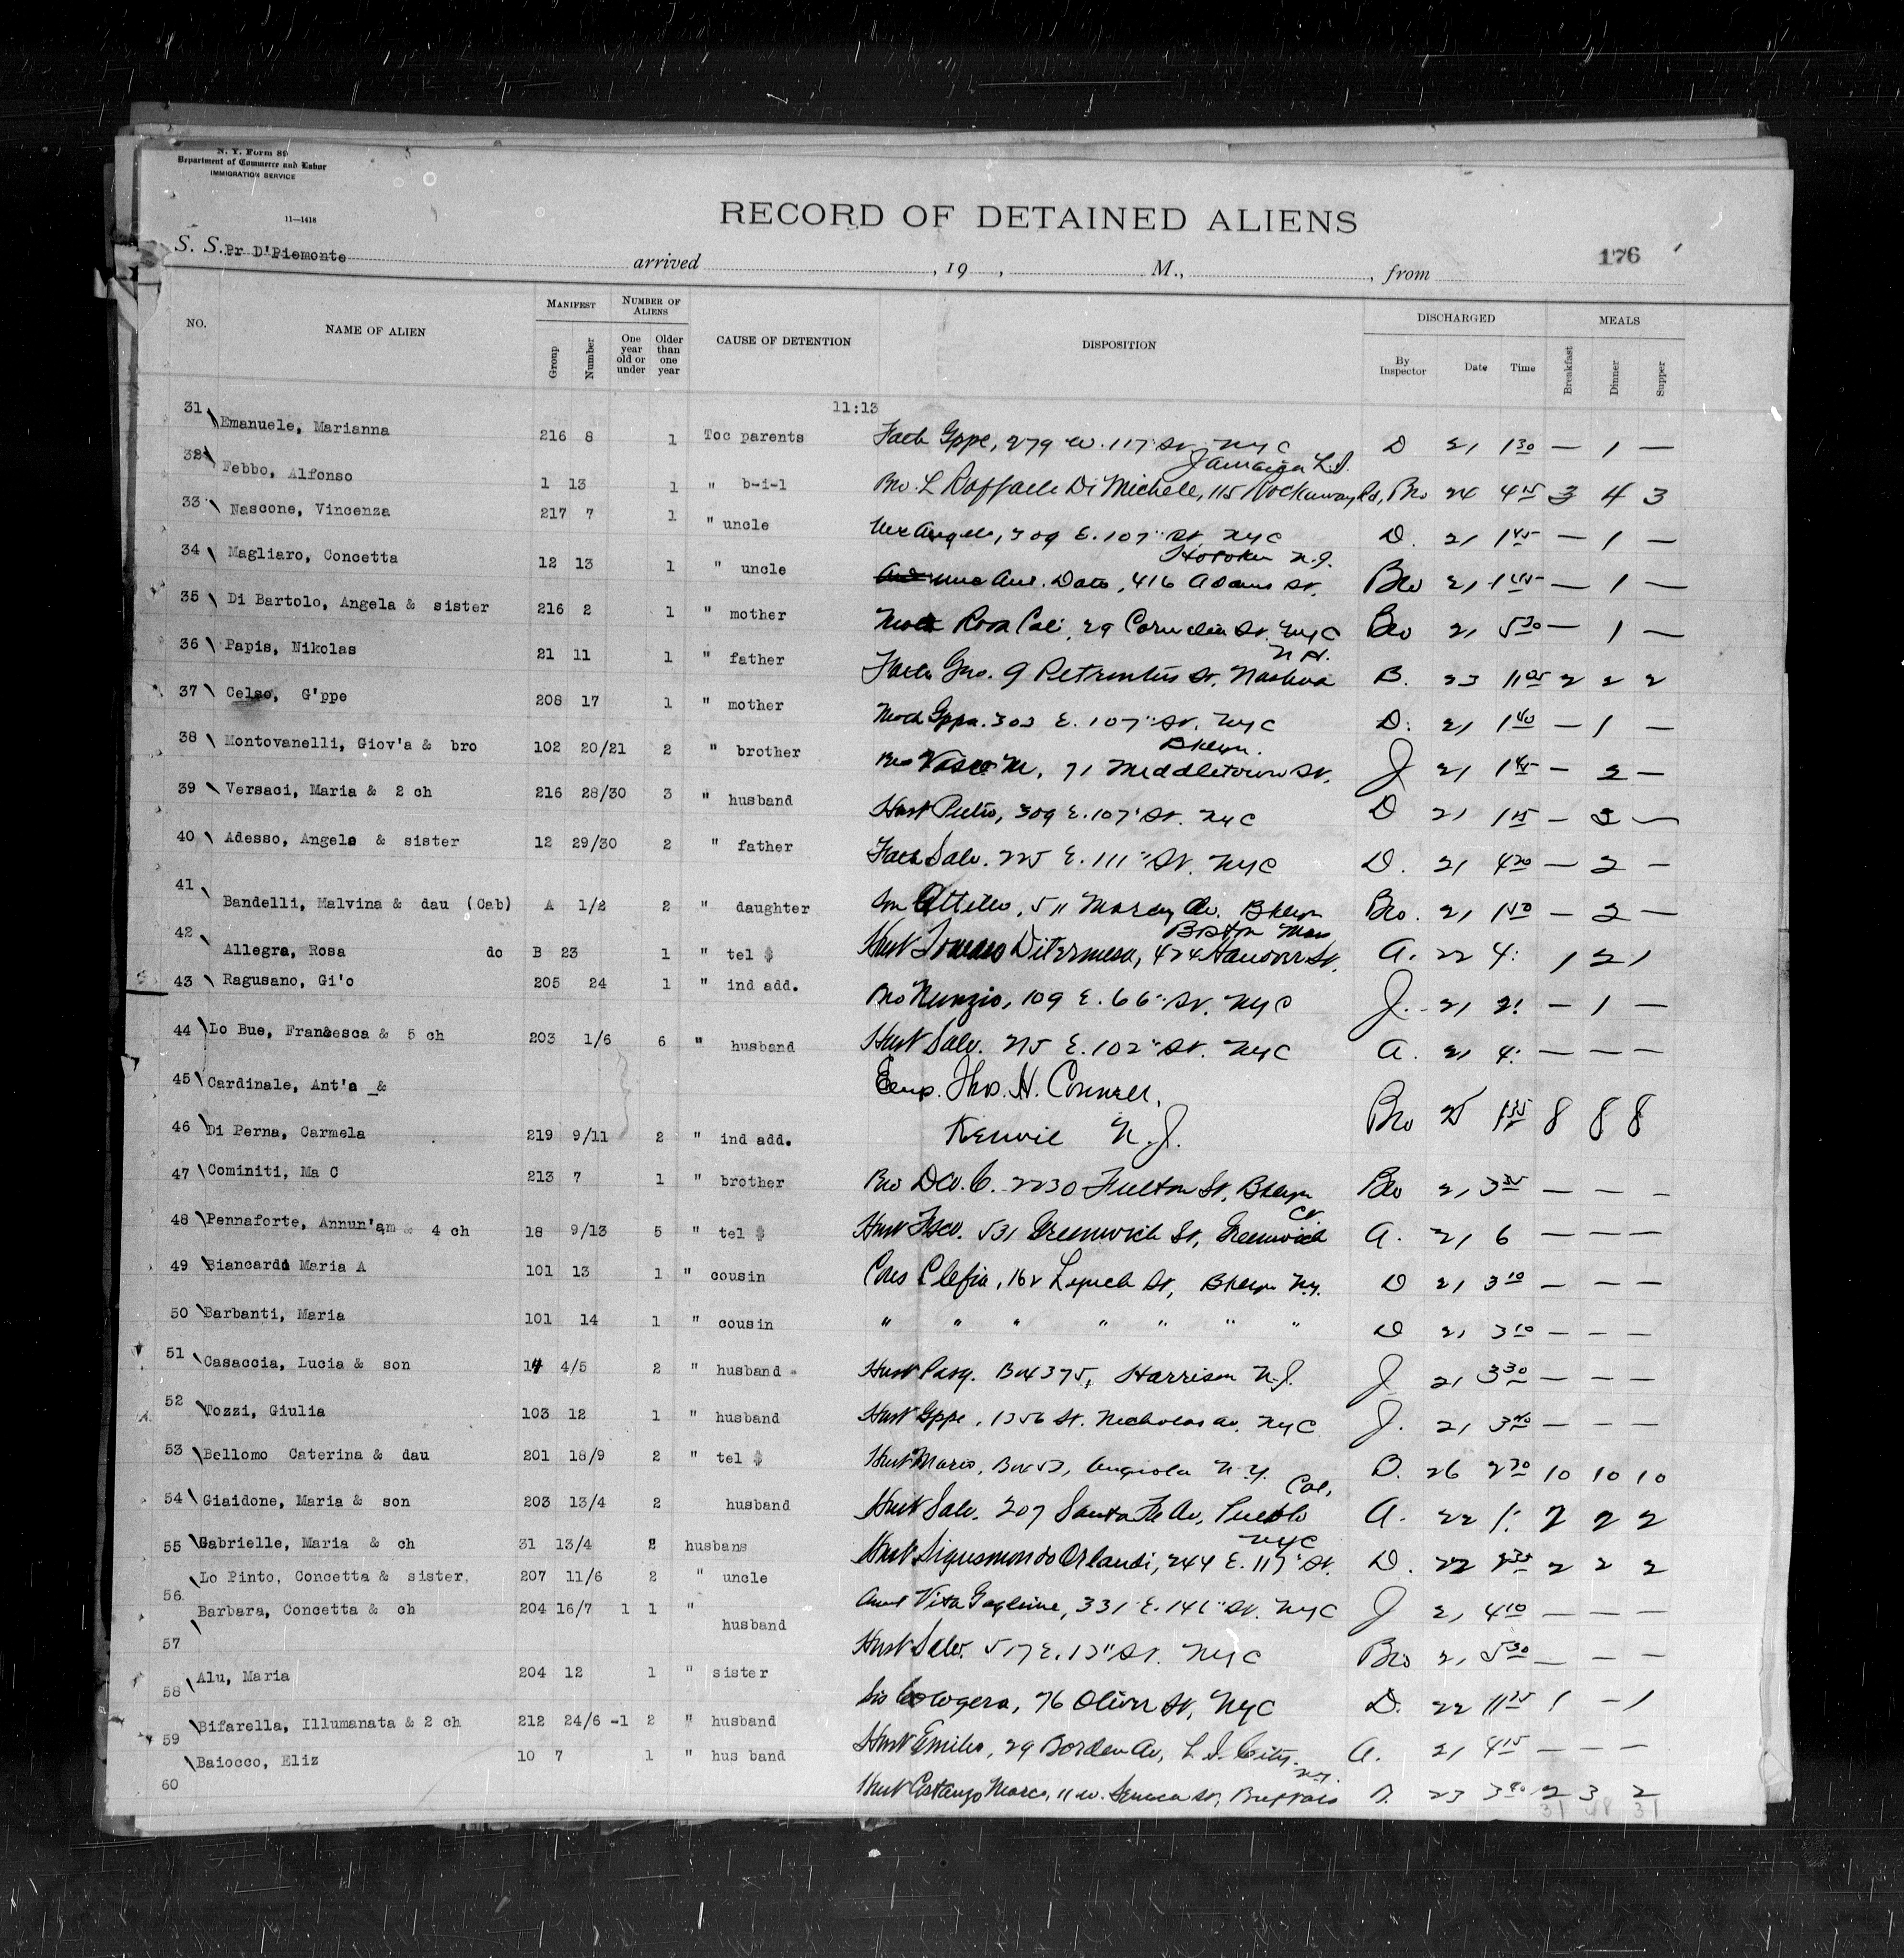 N. Y. Form 89
Department of Commerce and Labor
IMMIGRATION SERVICE
11—1418
RECORD OF DETAINED ALIENS
176
S. S. Pr D'Piemonte arrived , 19 , M., , from
NO. NAME OF ALIEN MANIFEST Group Number NUMBER OF ALIENS One year old or under Older than one year CAUSE OF DETENTION DISPOSITION DISCHARGED By Inspector Date Time MEALS Breakfast Dinner Supper
11:13
31 Emanuele, Marianna 216 8 1 Toc parents Fath Gppe, 279 W. 117" St. NYC D 21 1 30 — 1 —
32 Febbo, Alfonso 1 13 1 " b-i-l Bro. L Raffaele Di Michele, 115 Rockaway Rd, Jamaica L.I. Bro 24 4 15 3 4 3
33 Nascone, Vincenza 217 7 1 " uncle Unc Angelo, 309 E. 107" St. NYC D. 21 1 45 — 1 —
34 Magliaro, Concetta 12 13 1 " uncle Dato, 416 Adams St. Hoboken N.J. Bro 21 1 45 — 1 —
35 Di Bartolo, Angela & sister 216 2 1 " mother Moth Rosa Cali, 29 Cornelia St. NYC Bro 21 5 30 — 1 —
36 Papis, Nikolas 21 11 1 " father Fath Geo. 9 St. Nashua N.H. B. 23 11 05 2 2 2
37 Celso, G'ppe 208 17 1 " mother Moth Gppa. 303 E. 107" St. NYC D. 21 1 40 — 1 —
38 Montovanelli, Giov'a & bro 102 20/21 2 " brother Bro Vasco M, 71 Middletown St. Bklyn. J 21 1 45 — 2 —
39 Versaci, Maria & 2 ch 216 28/30 3 " husband Husb Pietro, 309 E. 107" St. NYC D 21 1 15 — 3 —
40 Adesso, Angela & sister 12 29/30 2 " father Fath Salv. 225 E. 111" St. NYC D. 21 4 20 — 2 —
41 Bandelli, Malvina & dau (Cab) A 1/2 2 " daughter Son Attilio, 511 Marcy Av. Bklyn Bro. 21 1 50 — 2 —
42 Allegra, Rosa do B 23 1 " tel $ Husb 424 Hanover St. Boston Mass A. 22 4: 1 2 1
43 Ragusano, Gi'o 205 24 1 " ind add. Bro Nunzio, 109 E. 66" St. NYC J. 21 2: — 1 —
44 Lo Bue, Francesca & 5 ch 203 1/6 6 " husband Husb Salv. 215 E. 102" St. NYC A. 21 4: — — —
45 Cardinale, Ant'a & Emp. Thos. H. Connell,
46 Di Perna, Carmela 219 9/11 2 " ind add. Kenvil N.J. Bro 25 1 35 8 8 8
47 Cominiti, Ma C 213 7 1 " brother Bro C. 2230 Fulton St, Bklyn Bro 21 3 35 — — —
48 Pennaforte, Annun'am & 4 ch 18 9/13 5 " tel $ Husb Fsco. 531 Greenwich St, Greenwich Ct. A. 21 6 — — —
49 Biancardi Maria A 101 13 1 " cousin Cous Clefia, 162 Lynch St, Bklyn N.Y. D 21 3 10 — — —
50 Barbanti, Maria 101 14 1 " cousin " " " " " " " D 21 3 10 — — —
51 Casaccia, Lucia & son 14 4/5 2 " husband Husb Pasq. Box 375, Harrison N.J. J 21 3 30 — — —
52 Tozzi, Giulia 103 12 1 " husband Husb Gppe, 1356 St. Nicholas Av. NYC J. 21 3 40 — — —
53 Bellomo Caterina & dau 201 18/9 2 " tel $ Husb Mario, Box 53, Angiola N.Y. D. 26 2 30 10 10 10
54 Giaidone, Maria & son 203 13/4 2 husband Husb Salv. 207 Santa Fe Av, Pueblo Col. A. 22 1: 2 2 2
55 Gabrielle, Maria & ch 31 13/4 2 husbans Husb Sigusmondo Orlandi, 244 E. 117" St. NYC D. 22 2 2 2
56 Lo Pinto, Concetta & sister. 207 11/6 2 " uncle Aunt Vita Gaglione, 331 E. 141" St. NYC J 21 4 10 — — —
57 Barbara, Concetta & ch 204 16/7 1 1 " husband Husb Salv. 517 E. 13" St. NYC Bro 21 5 30 — — —
58 Alu, Maria 204 12 1 " sister Sis Cologera, 76 Oliver St, NYC D. 22 11 25 1 — 1
59 Bifarella, Illumanata & 2 ch 212 24/6 -1 2 " husband Husb Emilio, 29 Borden Av, L.I. City. A. 21 4 15 — — —
60 Baiocco, Eliz 10 7 1 " hus band Husb Costanzo Marco, 11 W. Seneca St, Buffalo N.Y. D. 23 3 40 2 3 2
31 48 31